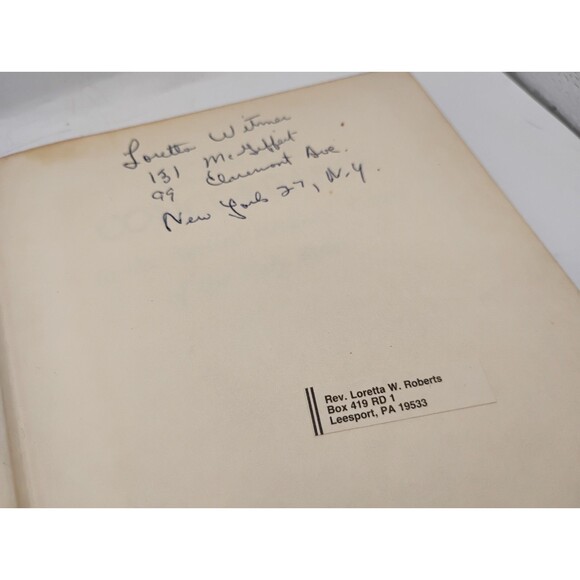 Loretta Witmer
131 McGiffert
99 Claremont Ave.
New York 27, N.Y.
Rev. Loretta W. Roberts
Box 419 RD 1
Leesport, PA 19533